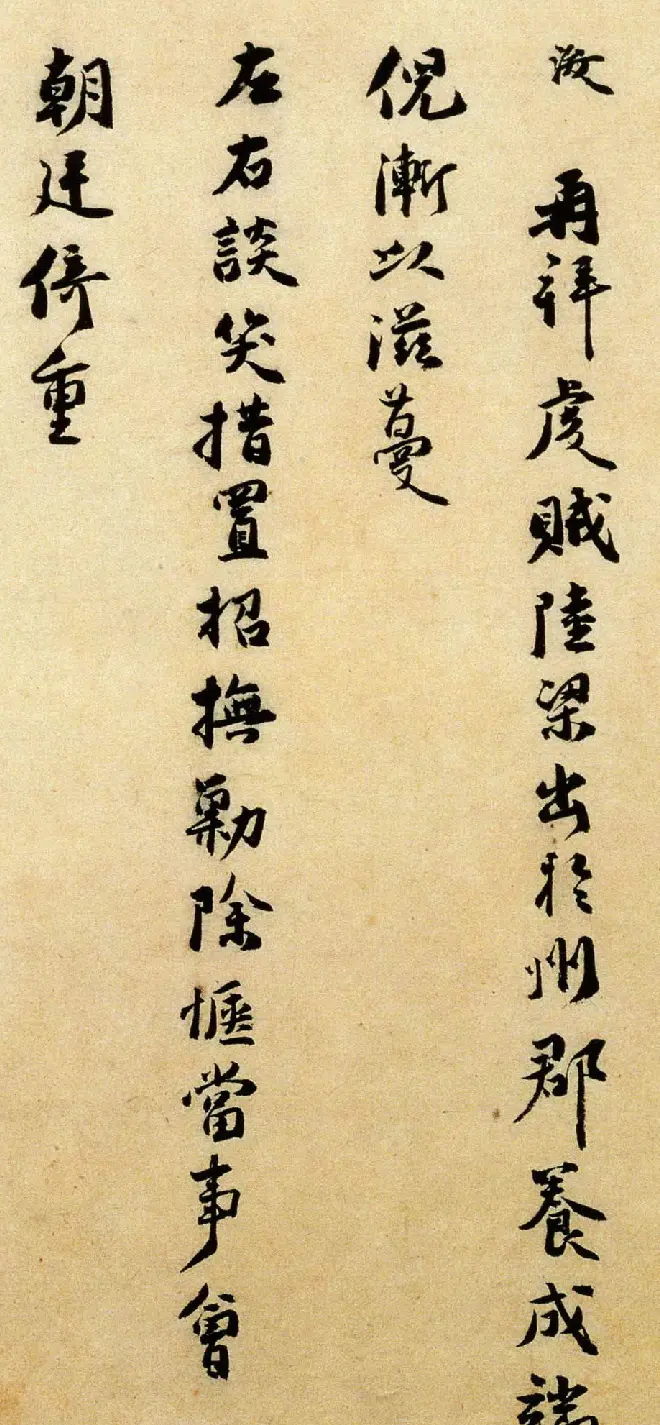 浚 再拜虔賊陸梁出於州郡養成端
倪漸以滋蔓
左右談笑措置招撫勦除愜當事會
朝廷倚重